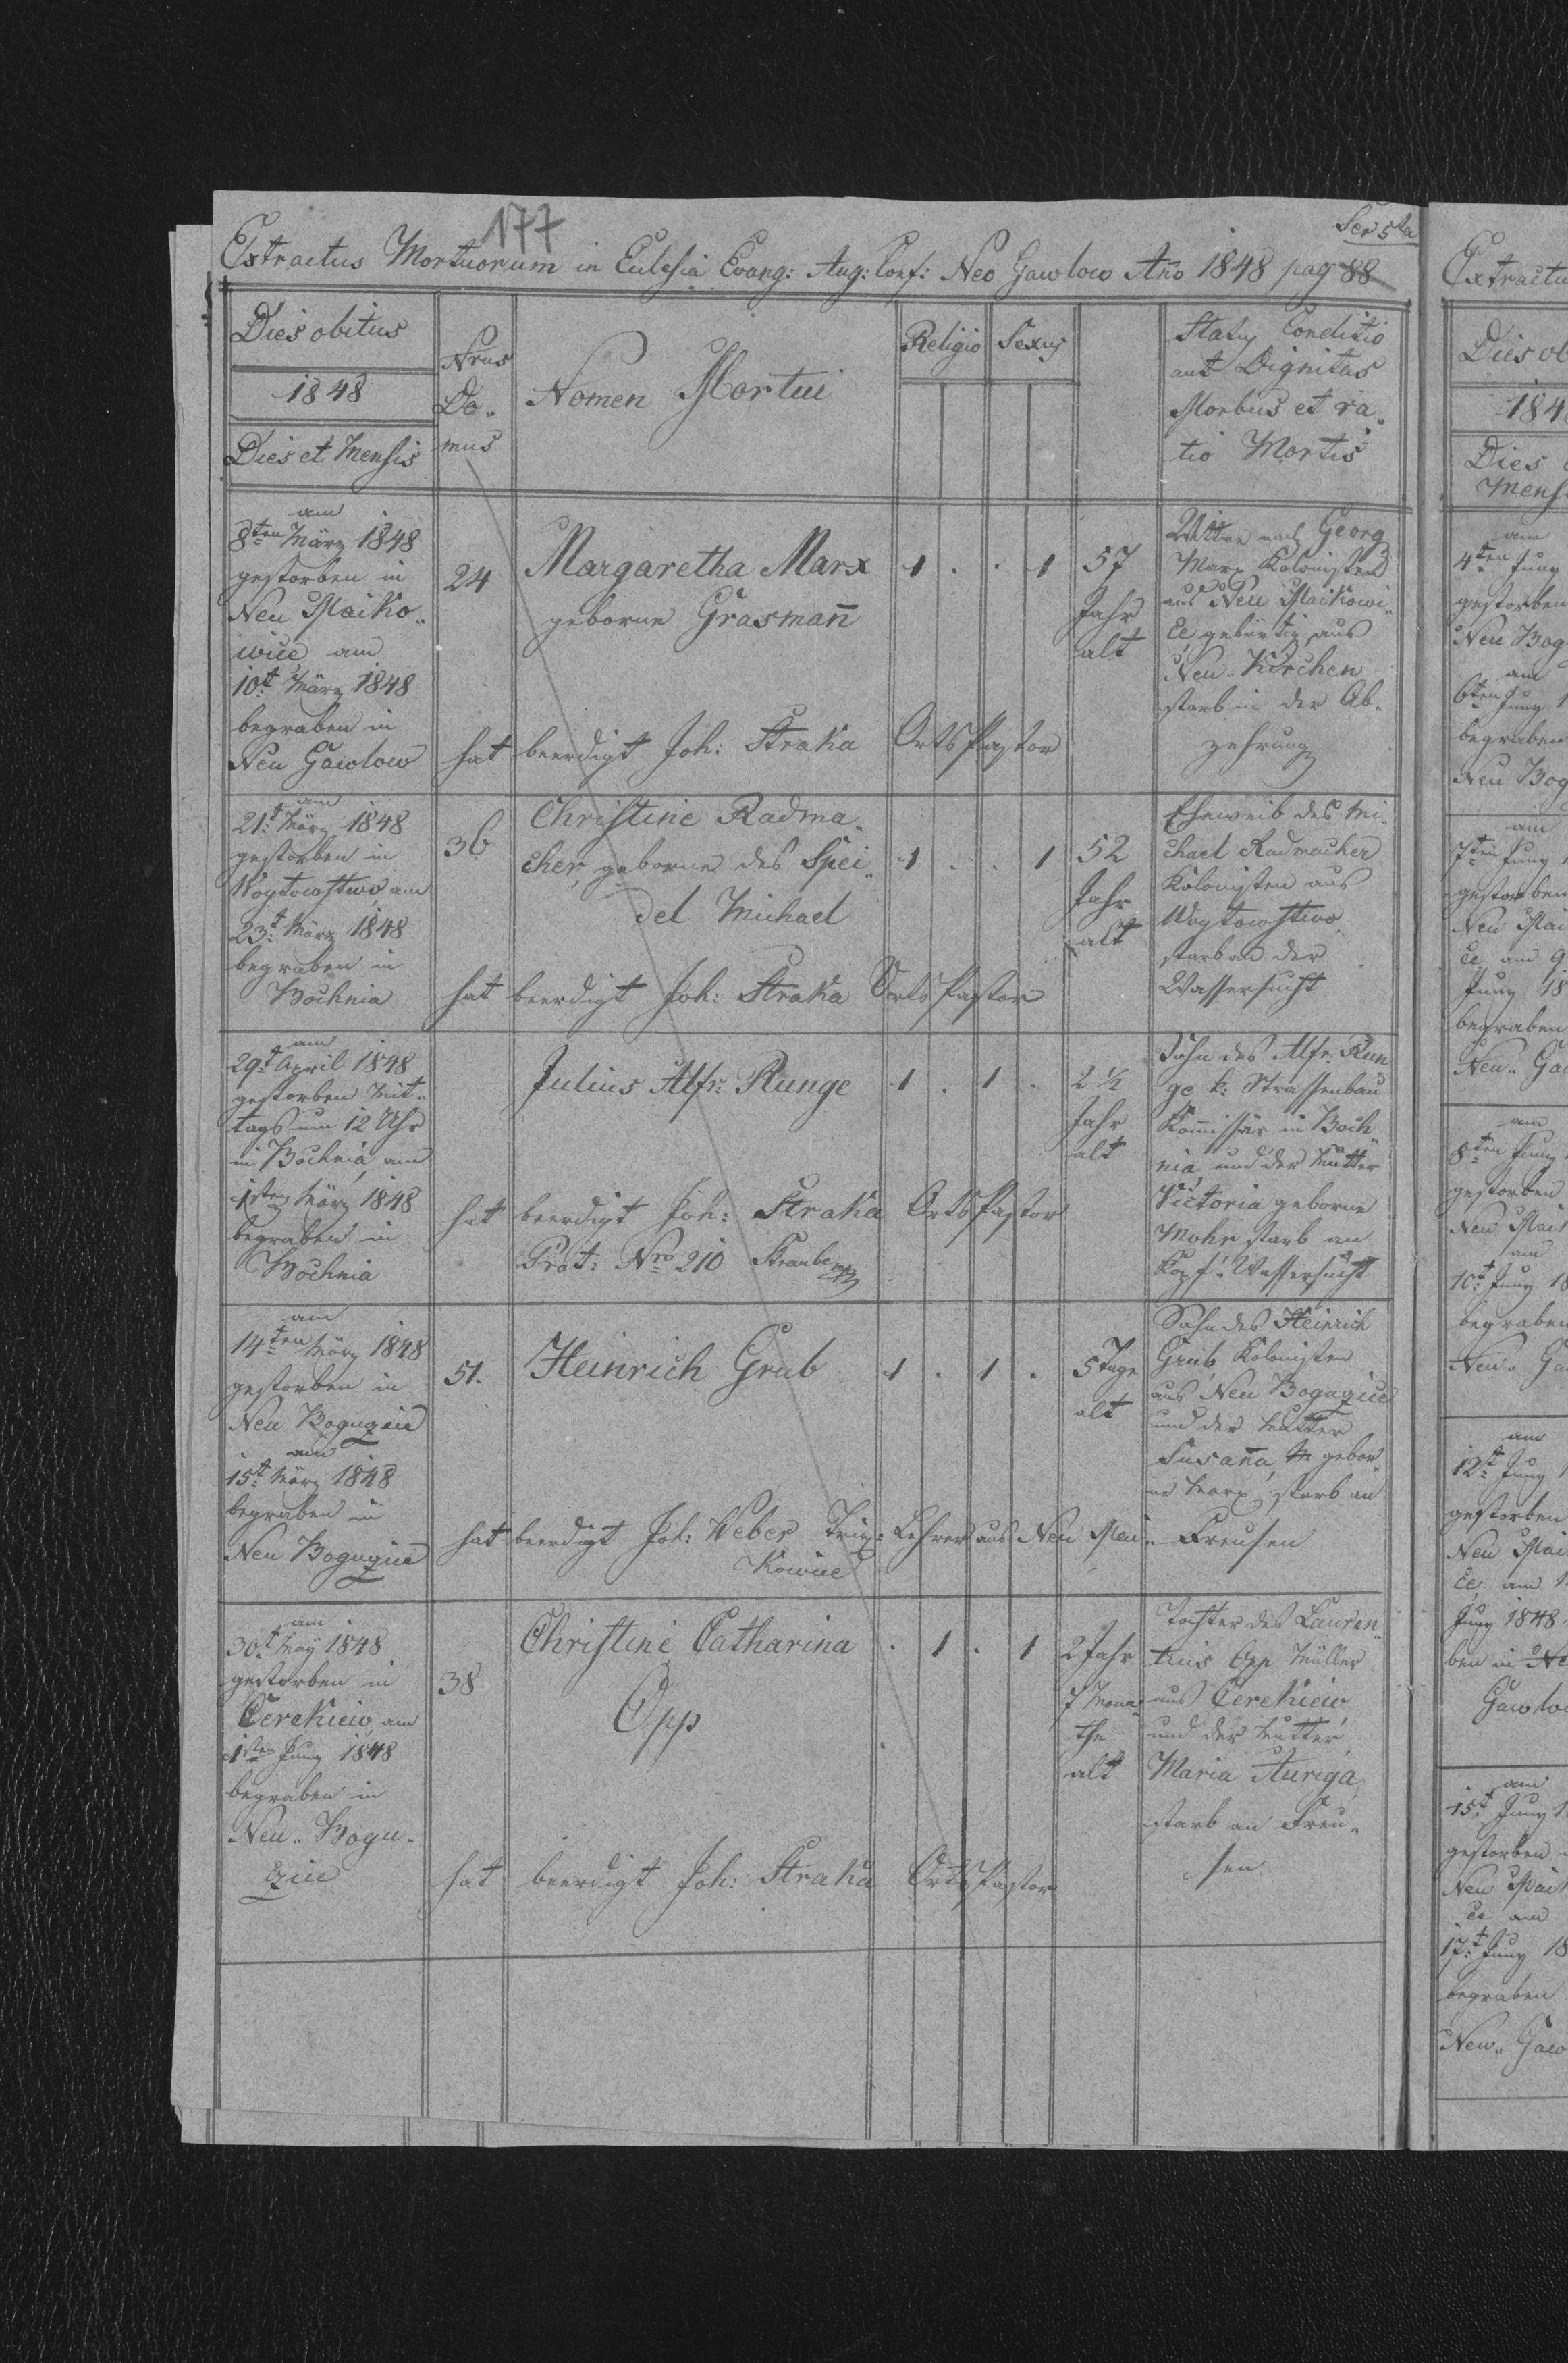 177
Ser 5ta
Extractus Mortuorum in Eclesia Evang: Aug: Conf: Neo Gawlow Año 1848 pag 88
Dies obitus
1848
Dies et Mensis
Nrus
Do„
mus
Nomen Mortui
Religio
Sexus
Status Conditio
aut Dignitas
Morbus et ra„
tio Mortis
am
8ten März 1848
gestorben in
Neu Maiko„
wice, am
10t März 1848
begraben in
Neu Gawlow
24
Margaretha Marx
geborne Grasman̄
hat beerdigt Joh: Straka Orts Pastor
1 . . 1
57
Jahr
alt
Wittwe nach Georg
Marx Kolonisten
aus Neu Maikowi„
ce, gebürtig aus
Neu„ Kirchen
starb in der Ab„
zehrung
am
21t März 1848
gestorben in
Woytowstwo, am
23t März 1848
begraben in
Bochnia
36
Christine Radma„
cher, geborne des Spei„
del Michael
hat beerdigt Joh: Straka Orts Pastor
1 . . 1
52
Jahr
alt
Eheweib des Mi„
chael Radmacher
Kolonisten aus
Woytowstwo
starb an der
Wassersucht
am
29t April 1848
gestorben Mit„
tags um 12 Uhr
in Bochnia, am
1sten März 1848
begraben in
Bochnia
Julius Alfr: Runge
hat beerdigt Joh: Straka Orts Pastor
Prot: Nro 210
1 . 1 .
2 ½
Jahr
alt
Sohn des Alfr: Run
ge k: Strassenbau
Kom̄issär in Boch„
nia und der Mutter
Victoria geborne
Mohr starb am
Kopf„ Wassersucht
am
14ten März 1848
gestorben in
Neu Bogugice
am
15t März 1848
begraben in
Neu Bogugice
51.
Heinrich Grub
hat beerdigt Joh: Weber Triv: Lehrer aus Neu Mai„
Kowice
1 . 1 .
5 Tage
alt
Sohn des Heinrich
Grub, Kolonisten
aus Neu Bogugice
und der Mutter
Susan̄a, M gebor„
ne Marx, starb an
Freusen
am
30t May 1848
gestorben in
Cerekiew, am
1sten Juny 1848
begraben in
Neu„ Bogu„
gice
38
Christine Catharina
Opp
hat beerdigt Joh: Straka Orts Pastor
. 1 . 1
2 Jahr
7 Mona„
the
alt
Tochter des Lauren„
tius Opp Müller
aus Cerekiew,
und der Mutter,
Maria Auriga,
starb an Freu„
sen
Extractu
Dies ob
184
Dies
Mens
am
4ten Juny
gestorben
Neu Bog
am
6ten Juny 1
begraben
Neu Bog
am
7ten Juny 1
gestorben
Neu Mai
ce, am 9
Juny 18
begraben
Neu„ Ga
am
8ten Juny
gestorben
Neu Mai
am
10t Juny 18
begraben
Neu„ Ga
am
12t Juny 1
gestorben
Neu Mai
ce, am 1
Juny 1848
ben in Ne
Gawlow
am
15t Juny 1
gestorben
Neu Mai
ce am
17t Juny 18
begraben
Neu„ Gaw